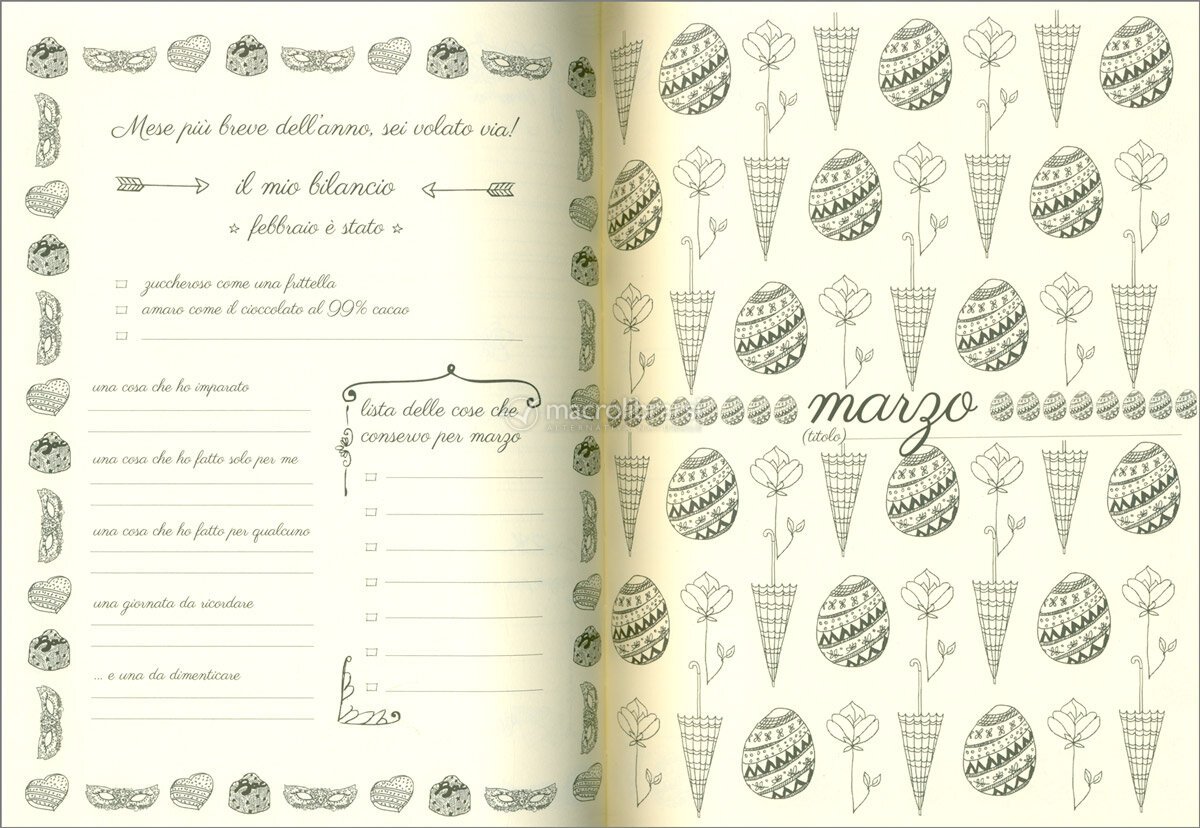 Mese più breve dell'anno, sei volato via!
il mio bilancio
febbraio è stato
zuccheroso come una frittella
amaro come il cioccolato al 99% cacao
una cosa che ho imparato
una cosa che ho fatto solo per me
una cosa che ho fatto per qualcuno
una giornata da ricordare
... e una da dimenticare
lista delle cose che
conservo per marzo
marzo
(titolo)